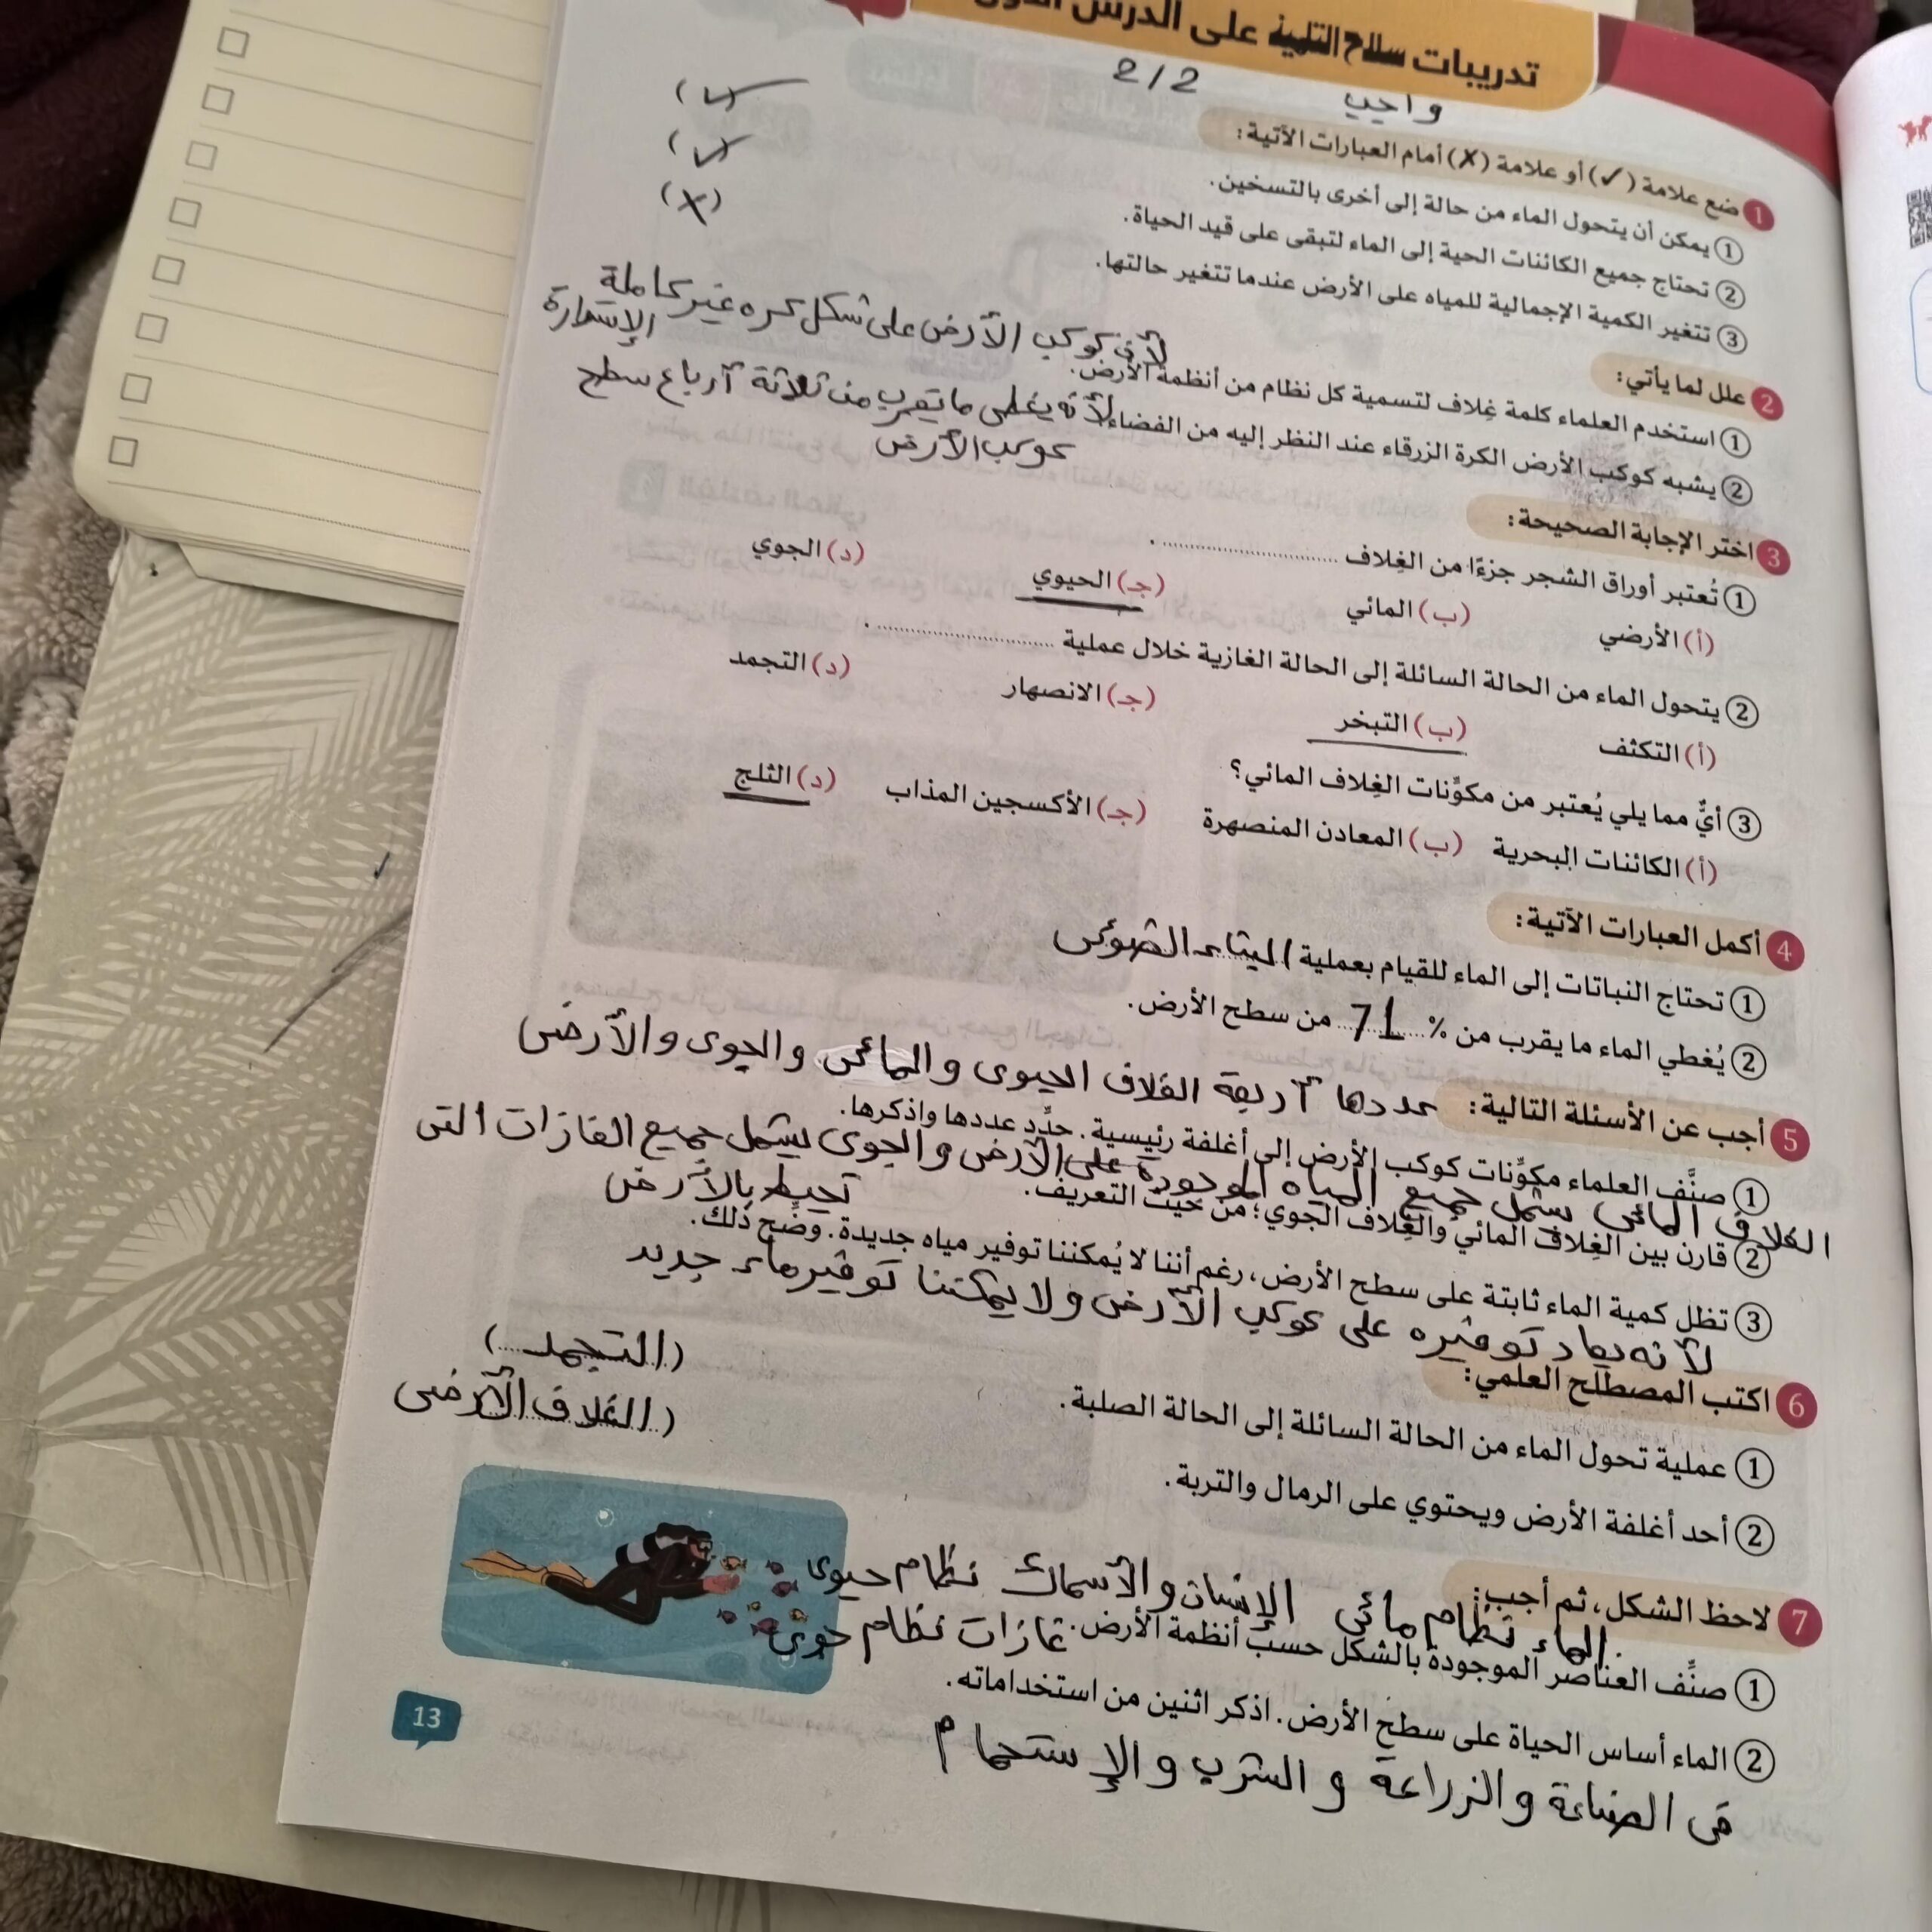 تدريبات سلاح التلميذ على الدرس الأول
واجب 2/2
1 ضع علامة (✓) أو علامة (✗) أمام العبارات الآتية:
① يمكن أن يتحول الماء من حالة إلى أخرى بالتسخين. (✓)
② تحتاج جميع الكائنات الحية إلى الماء لتبقى على قيد الحياة. (✓)
③ تتغير الكمية الإجمالية للمياه على الأرض عندما تتغير حالتها. (X)
2 علل لما يأتي:
لأن كوكب الأرض على شكل كره غير كاملة
الإستدارة
① استخدم العلماء كلمة غِلاف لتسمية كل نظام من أنظمة الأرض.
لأنه يغطى ما يقرب من ثلاثة أرباع سطح
كوكب الأرض
② يشبه كوكب الأرض الكرة الزرقاء عند النظر إليه من الفضاء.
3 اختر الإجابة الصحيحة:
① تُعتبر أوراق الشجر جزءًا من الغِلاف ............
(أ) الأرضي (ب) المائي (جـ) الحيوي (د) الجوي
② يتحول الماء من الحالة السائلة إلى الحالة الغازية خلال عملية ............
(أ) التكثف (ب) التبخر (جـ) الانصهار (د) التجمد
③ أيٌّ مما يلي يُعتبر من مكوِّنات الغِلاف المائي؟
(أ) الكائنات البحرية (ب) المعادن المنصهرة (جـ) الأكسجين المذاب (د) الثلج
4 أكمل العبارات الآتية:
① تحتاج النباتات إلى الماء للقيام بعملية البناء الضوئى
② يُغطي الماء ما يقرب من % 71 من سطح الأرض.
5 أجب عن الأسئلة التالية: عددها أربعة الغلاف الحيوى والمائى والجوى والأرضى
① صنَّف العلماء مكوِّنات كوكب الأرض إلى أغلفة رئيسية. حدِّد عددها واذكرها.
الغلاف المائى يشمل جميع المياه الموجودة على الأرض والجوى يشمل جميع الغازات التى
تحيط بالأرض
② قارن بين الغِلاف المائي والغِلاف الجوي؛ من حيث التعريف.
③ تظل كمية الماء ثابتة على سطح الأرض، رغم أننا لا يُمكننا توفير مياه جديدة. وضِّح ذلك.
لأنه يعاد توفيره على كوكب الأرض ولا يمكننا توفير ماء جديد
6 اكتب المصطلح العلمي:
① عملية تحول الماء من الحالة السائلة إلى الحالة الصلبة. (التجمد)
② أحد أغلفة الأرض ويحتوي على الرمال والتربة. (الغلاف الأرضى
7 لاحظ الشكل، ثم أجب:
الماء نظام مائى الإنسان والأسماك نظام حيوى
① صنِّف العناصر الموجودة بالشكل حسب أنظمة الأرض. غازات نظام جوى
② الماء أساس الحياة على سطح الأرض. اذكر اثنين من استخداماته.
فى الصناعة والزراعة و الشرب والإستحمام
13